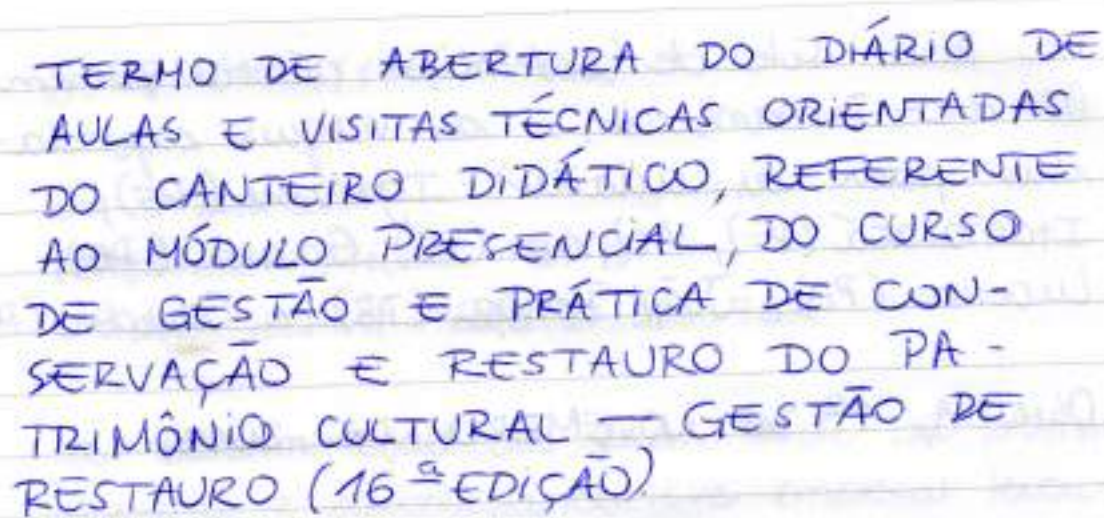 TERMO DE ABERTURA DO DIÁRIO DE
AULAS E VISITAS TÉCNICAS ORIENTADAS
DO CANTEIRO DIDÁTICO, REFERENTE
AO MÓDULO PRESENCIAL, DO CURSO
DE GESTÃO E PRÁTICA DE CON-
SERVAÇÃO E RESTAURO DO PA-
TRIMÔNIO CULTURAL — GESTÃO DE
RESTAURO (16ª EDIÇÃO)